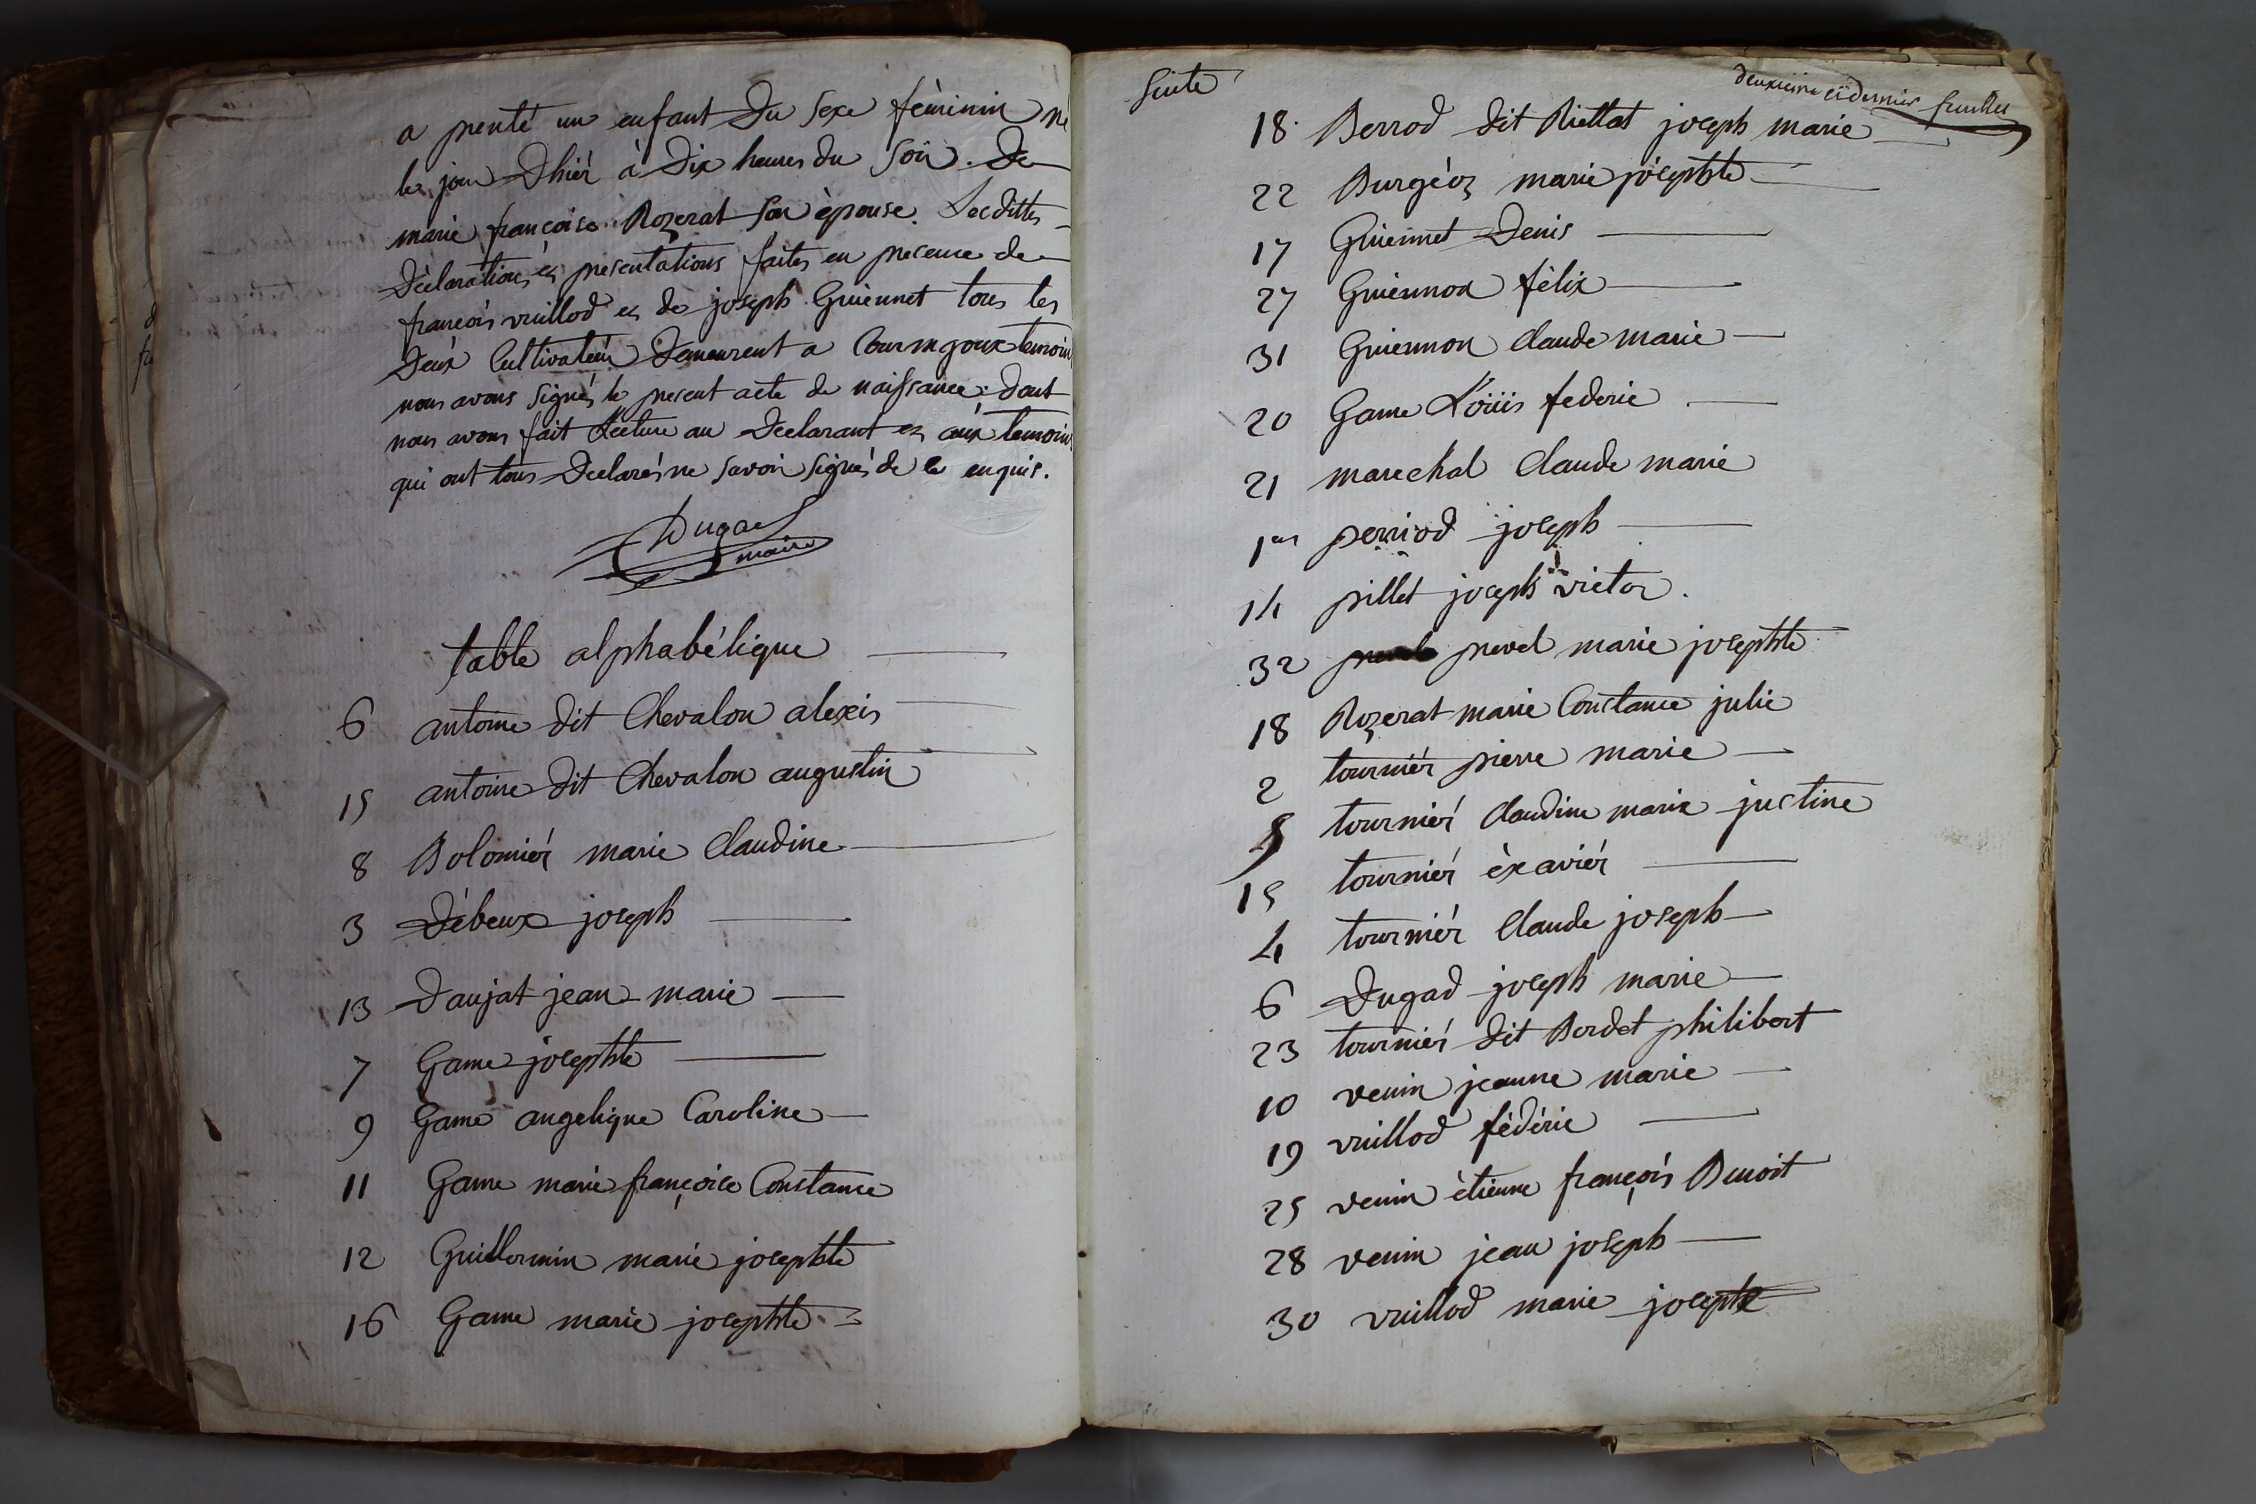 a prenté un enfant Du Sexe féminin né
le jour D'hiér à Dix heures du Soir. De
marie françoise Rozerat Son épouse. Lesdittes
Déclarations et presentations faites en presence de
françois vuillod et de joseph Guiennet tous les
Deux Cultivateur Demeurent a Courmgoux temoin
nous avons Signés le present acte de naissance. Dont
nous avons fait Lecture au Declarant et aux temoin
qui ont tous Declarés ne Savoir Signés de ce enquis.
Dugad
maire
table alphabétique
6 antoine dit Chevalon alexis
15 antoine dit Chevalon augustin
8 Bolomiér marie Claudine
3 Débeux joseph
13 Daujat jean marie
7 Game josephte
9 Game angelique Caroline
11 Game marie françoise Constance
12 Guillermin marie josephte
16 Game marie josephte
Suite
deuxieme et dernier feuillet
18 Berrod dit Riettat joseph marie
22 Burgéoz marie josephte
17 Guiennet Denis
27 Guiennon félix
31 Guiennon Claude marie
20 Game Loüis federic
21 marechal Claude marie
1er perriod joseph
14 pillet joseph victor.
32 pevel marie josephte
18 Rozerat marie Constance julie
2 tourniér pierre marie
5 tourniér Claudine marie justine
15 tourniér éxaviér
4 tourniér Claude joseph
6 Dugad joseph marie
23 tourniér dit Berdet philibert
10 venin jeanne marie
19 vuillod fédéric
25 venin étienne françois Benoit
28 venin jean joseph
30 vuillod marie josephte